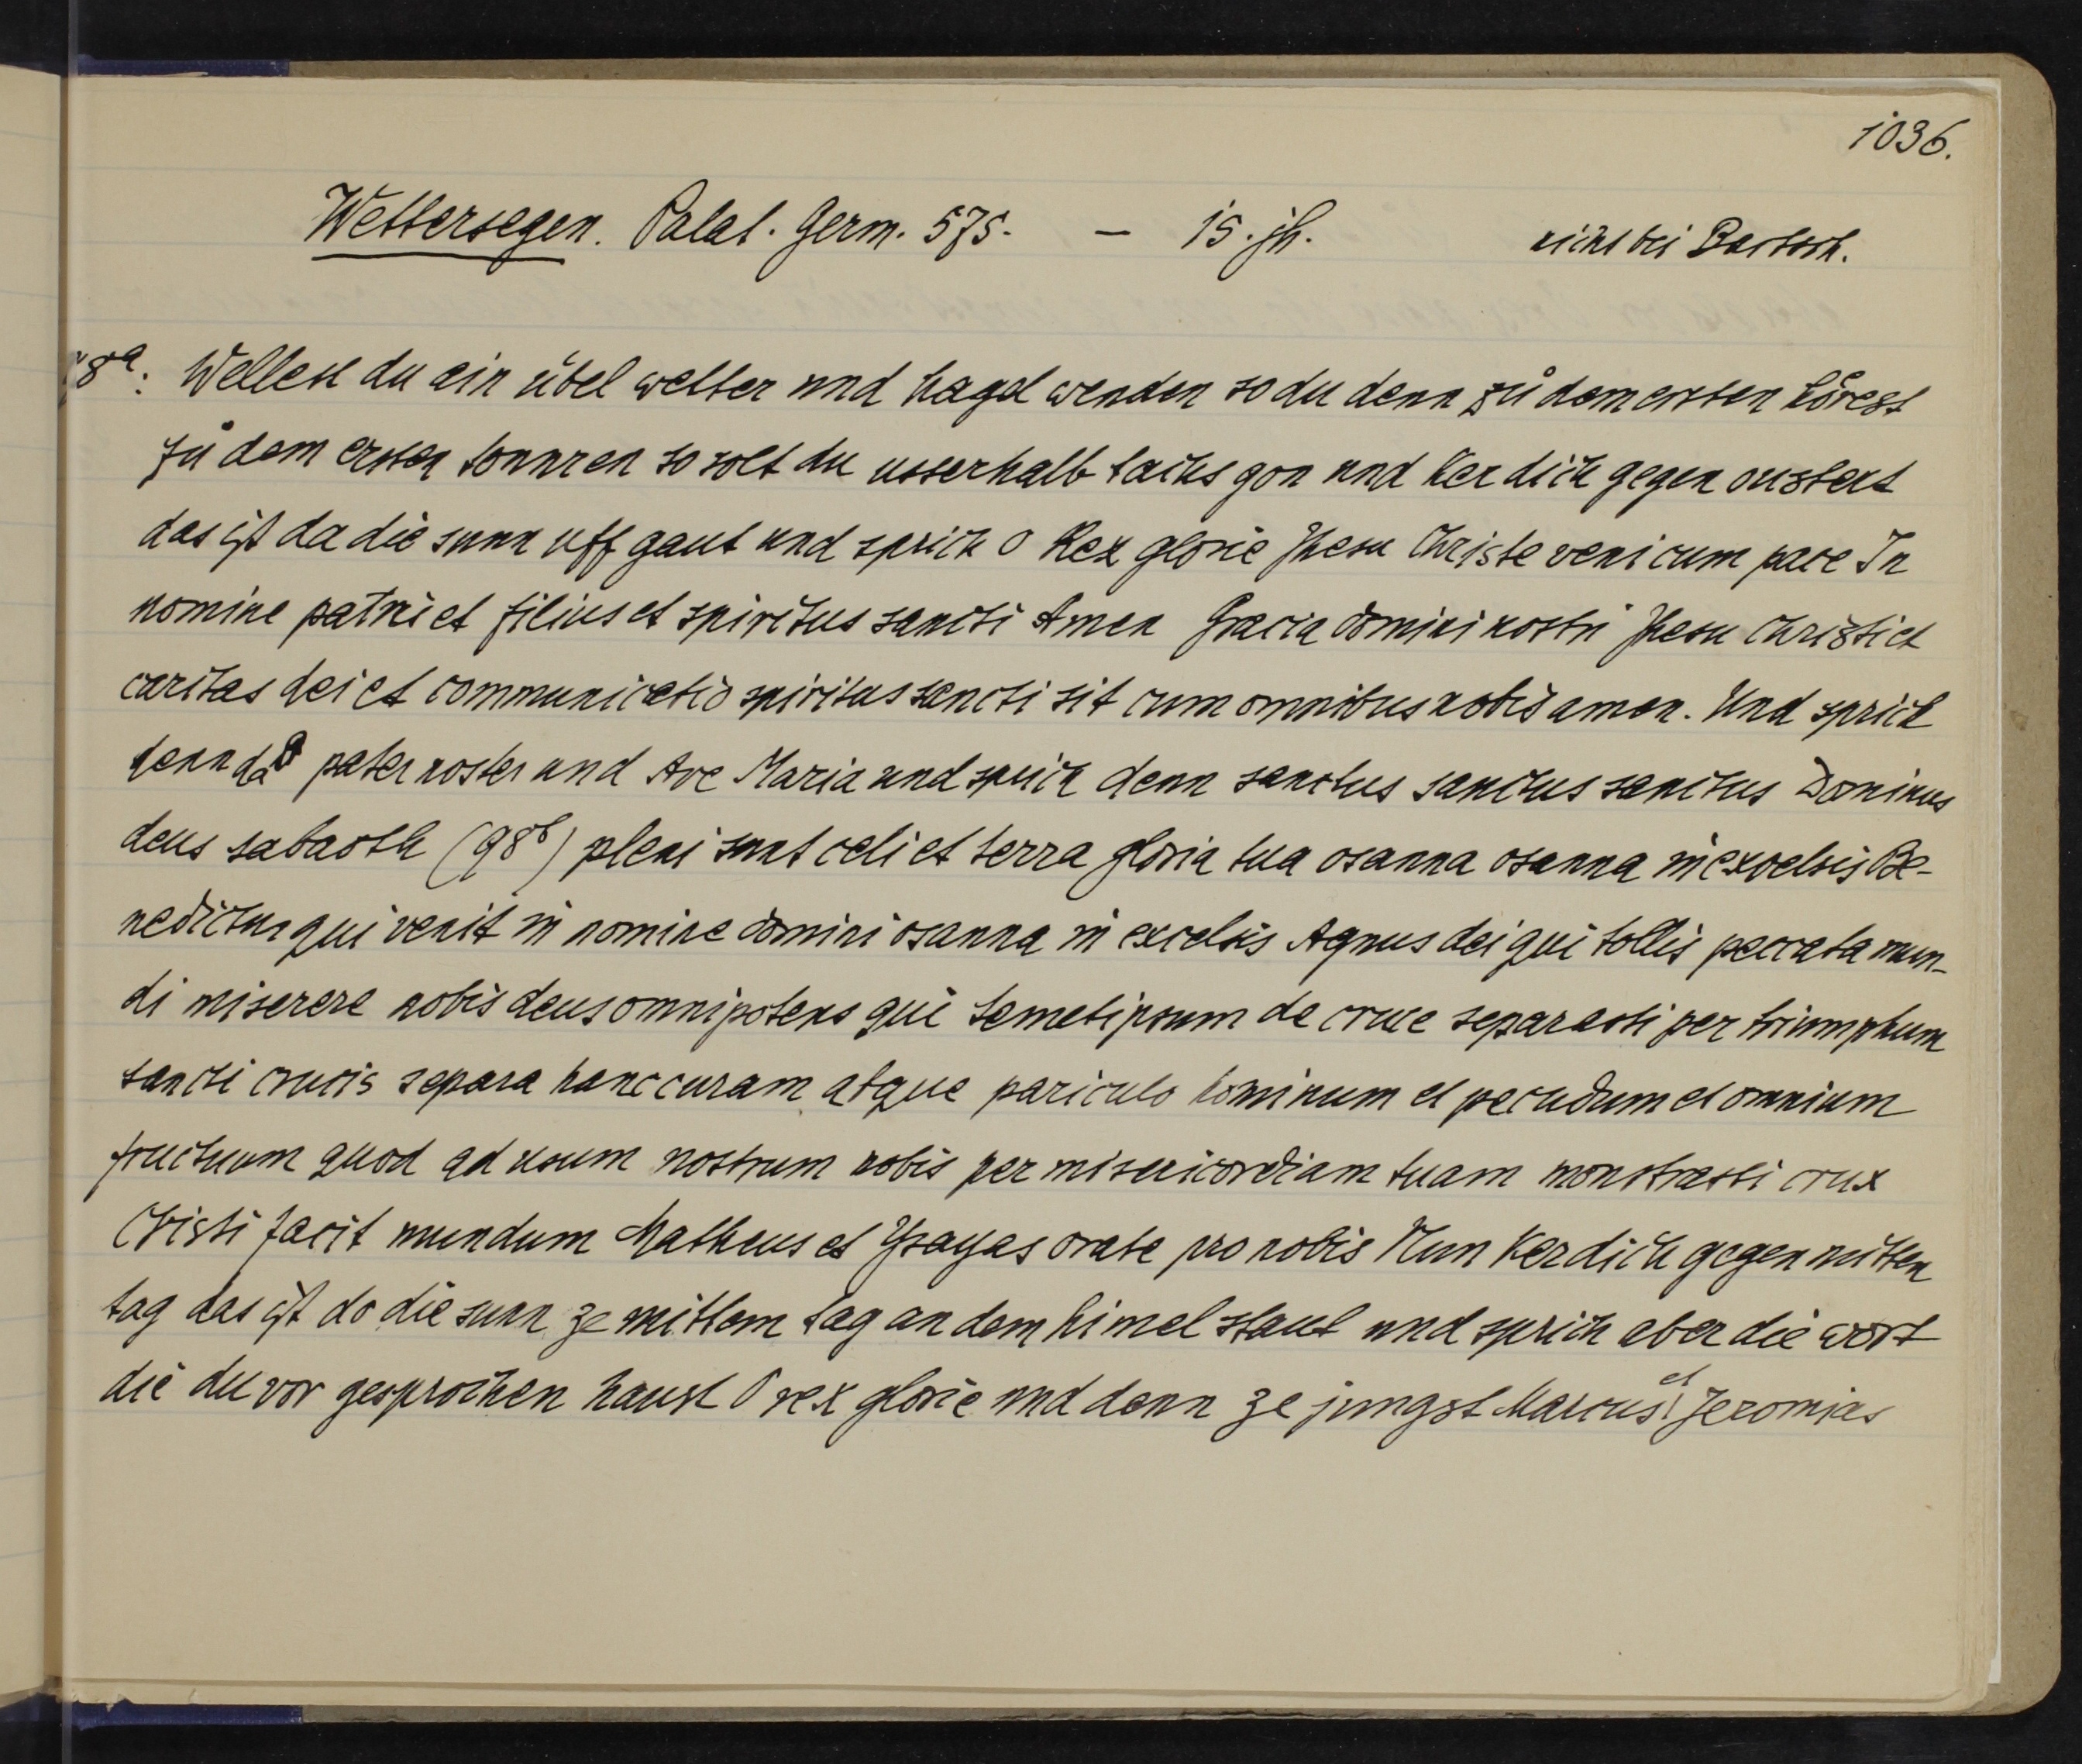 1036.
Wettersegen. Palat. Germ. 575. — 15. jh. nicht bei Bartsch.
98a: Wellest du ein übel wetter und hagel wenden so du denn zů dem ersten hörest
zů dem ersten tonnren so solt du usserhalb tachs gon und ker dich gegen oustert
das ist da die sunn uff gaut und sprich O Rex glorie Jhesu Christe veni cum pace In
nomine patri et filius et spiritus sancti Amen Gracia domini nostri Jhesu Christi et
caritas dei et communicatio spiritus sancti sit cum omnibus nobis amen. Und sprich
denn da pater noster und Ave Maria und sprich denn sanctus sanctus sanctus Dominus
deus sabaoth (98b) pleni sunt celi et terra gloria tua osanna osanna in excelsis Be-
nedictus qui venit in nomine domini osanna in excelsis Agnus dei qui tollis peccata mun-
di miserere nobis deus omnipotens qui temetipsum de cruce separasti per triumphum
sancti crucis separa hanc curam atque pariculo hominum et pecudum et omnium
fructuum quod ad usum nostrum nobis per misericordiam tuam monstrasti crux
Cristi facit mundum Matheus et Ysayas orate pro nobis Nun ker dich gegen mitten
tag das ist do die sunn ze mittem tag an dem himel staut und sprich aber die wort
die du vor gesprochen haust O rex glorie und denn ze jungst Marcus et Jeromias